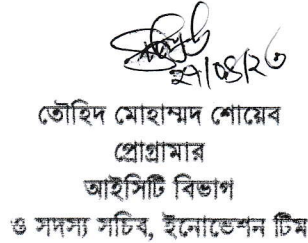 ২৭/০৪/২৩
তৌহিদ মোহাম্মদ শোয়েব
প্রোগ্রামার
আইসিটি বিভাগ
ও সদস্য সচিব, ইনোভেশন টিম